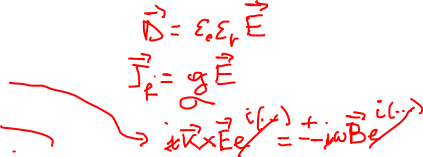 D⃗ = ε₀ εᵣ E⃗
J⃗_f = g E⃗
σ
i K⃗ × E⃗ e^{i(...)} = +- iω B⃗ e^{i(...)}